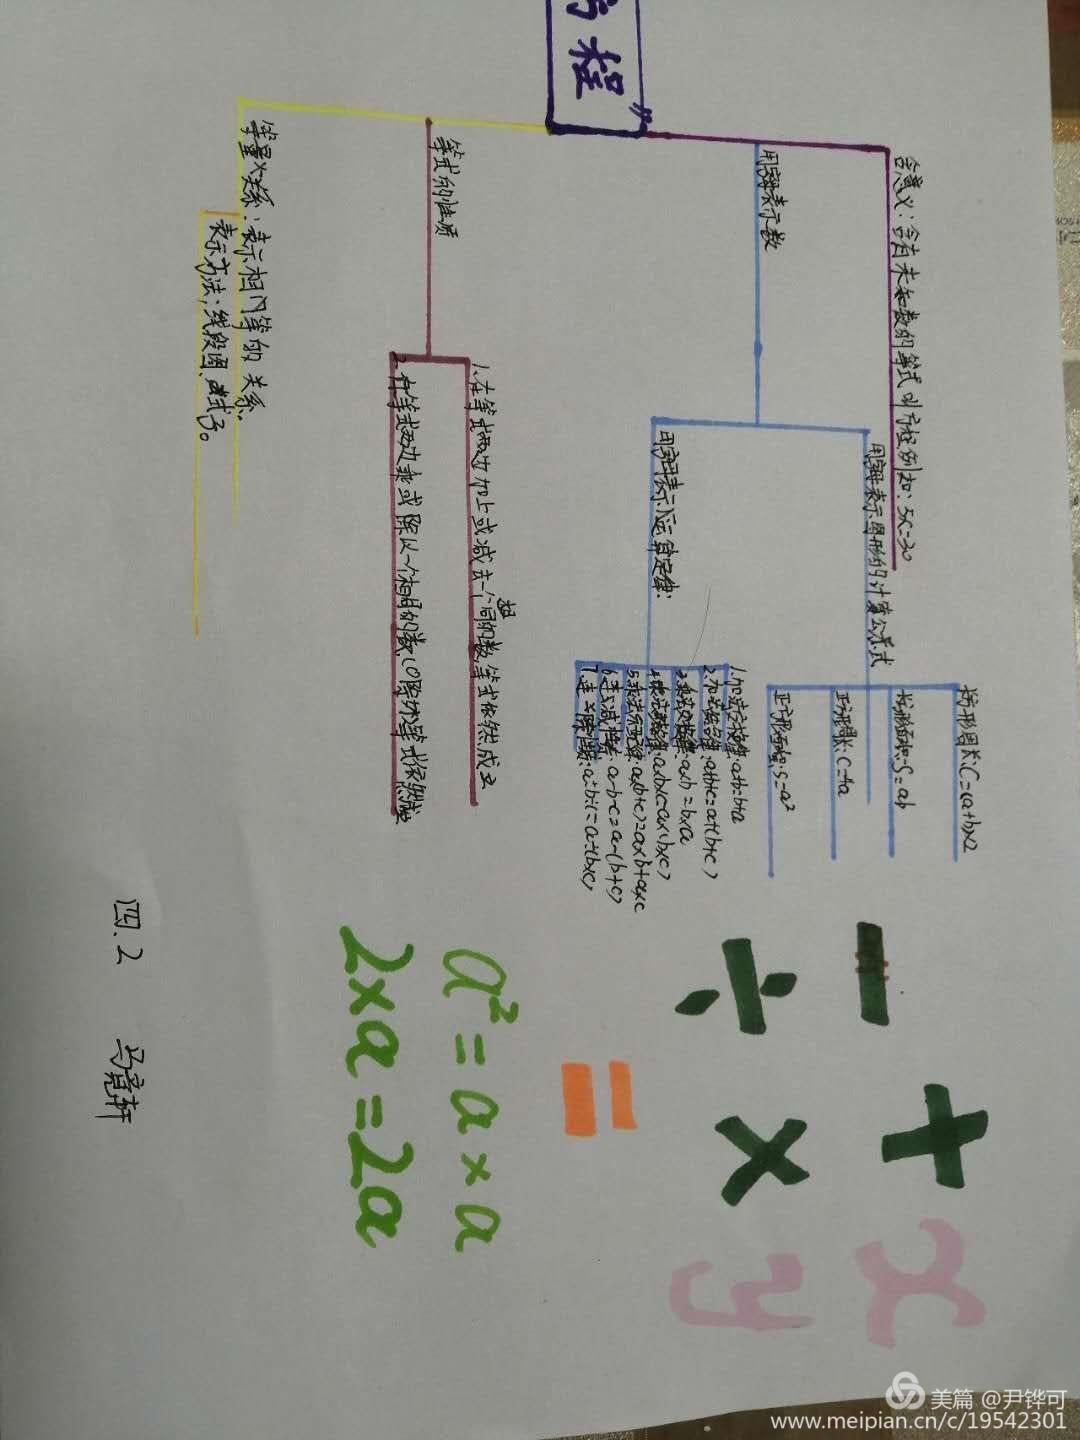 方程”
含意义：含有未知数的等式叫方程例如：5x=30
用字母表示数
用字母表示图形的计算公式
长方形周长：C=(a+b)×2
长方形面积：S=ab
正方形周长：C=4a
正方形面积：S=a²
用字母表示运算定律：
1.加法交换律：a+b=b+a
2.加法结合律：a+b+c=a+(b+c)
3.乘法交换律：a×b=b×a
4.乘法结合律：a×b×c=a×(b×c)
5.乘法分配律：a×(b+c)=a×b+a×c
6.连减性质：a-b-c=a-(b+c)
7.连除性质：a÷b÷c=a÷(b×c)
等式的性质
1.在等式两边加上或减去一个相同的数，等式依然成立
2.在等式两边乘或除以一个相同的数(0除外)等式依然成立
等量关系：表示相等的关系.
表示方法：线段图、式子。
- + x
÷ × y
=
a²=a×a
2×a=2a
四.2 马竞轩
美篇 @尹铧可
www.meipian.cn/c/19542301